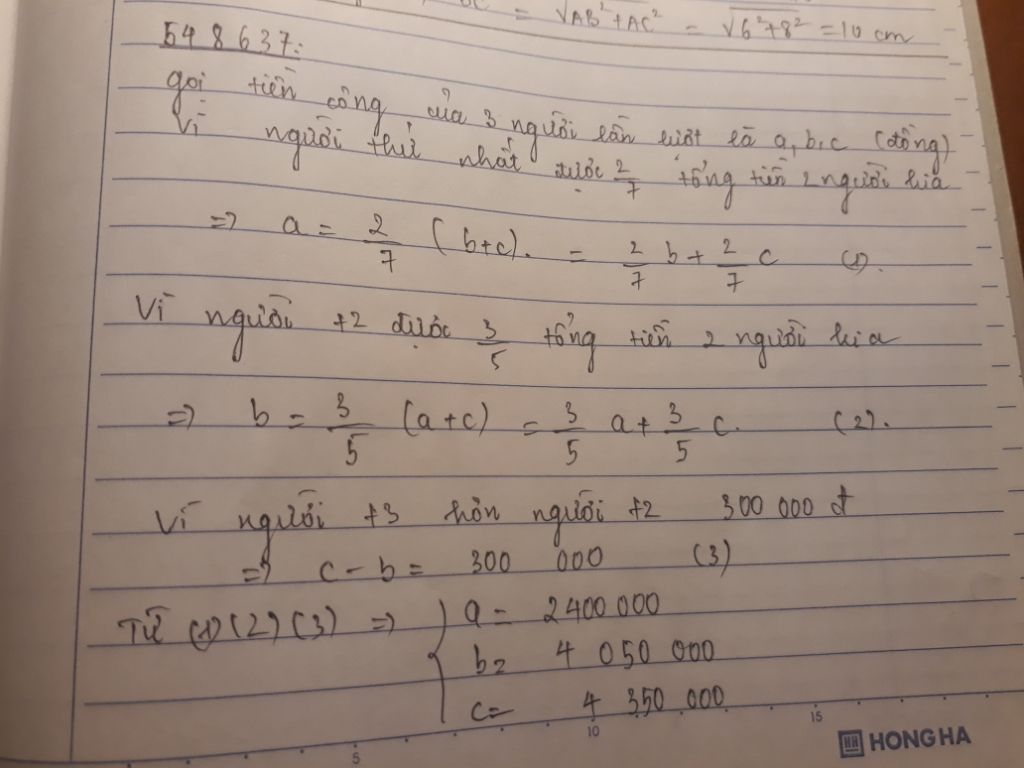 = √AB²+AC² = √6²+8² = 10 cm
548637:
gọi tiền công của 3 người lần lượt là a, b, c (đồng)
Vì người thứ nhất được 2/7 tổng tiền 2 người kia
=> a = 2/7 (b+c). = 2/7 b + 2/7 c (1).
Vì người t2 được 3/5 tổng tiền 2 người kia
=> b = 3/5 (a+c) = 3/5 a + 3/5 c. (2).
Vì người t3 hơn người t2 300 000 đ
=> c - b = 300 000 (3)
Từ (1) (2) (3) => { a = 2400 000
b = 4 050 000
c = 4 350 000
5 10 15
HONG HA